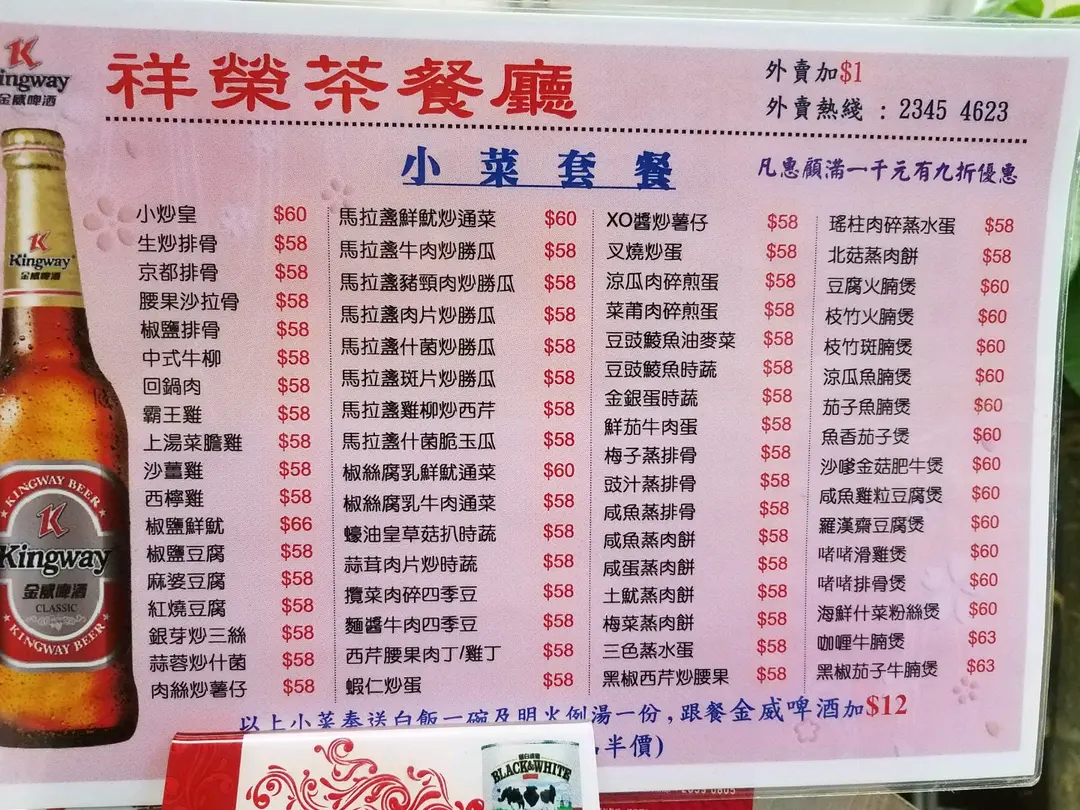 Kingway
金威啤酒
祥榮茶餐廳
外賣加$1
外賣熱綫 : 2345 4623
小菜套餐
凡惠顧滿一千元有九折優惠
小炒皇 $60
生炒排骨 $58
京都排骨 $58
腰果沙拉骨 $58
椒鹽排骨 $58
中式牛柳 $58
回鍋肉 $58
霸王雞 $58
上湯菜膽雞 $58
沙薑雞 $58
西檸雞 $58
椒鹽鮮魷 $66
椒鹽豆腐 $58
麻婆豆腐 $58
紅燒豆腐 $58
銀芽炒三絲 $58
蒜蓉炒什菌 $58
肉絲炒薯仔 $58
馬拉盞鮮魷炒通菜 $60
馬拉盞牛肉炒勝瓜 $58
馬拉盞豬頸肉炒勝瓜 $58
馬拉盞肉片炒勝瓜 $58
馬拉盞什菌炒勝瓜 $58
馬拉盞斑片炒勝瓜 $58
馬拉盞雞柳炒西芹 $58
馬拉盞什菌脆玉瓜 $58
椒絲腐乳鮮魷通菜 $60
椒絲腐乳牛肉通菜 $58
蠔油皇草菇扒時蔬 $58
蒜茸肉片炒時蔬 $58
攬菜肉碎四季豆 $58
麵醬牛肉四季豆 $58
西芹腰果肉丁/雞丁 $58
蝦仁炒蛋 $58
XO醬炒薯仔 $58
叉燒炒蛋 $58
涼瓜肉碎煎蛋 $58
菜莆肉碎煎蛋 $58
豆豉鯪魚油麥菜 $58
豆豉鯪魚時蔬 $58
金銀蛋時蔬 $58
鮮茄牛肉蛋 $58
梅子蒸排骨 $58
豉汁蒸排骨 $58
咸魚蒸排骨 $58
咸魚蒸肉餅 $58
咸蛋蒸肉餅 $58
土魷蒸肉餅 $58
梅菜蒸肉餅 $58
三色蒸水蛋 $58
黑椒西芹炒腰果 $58
瑤柱肉碎蒸水蛋 $58
北菇蒸肉餅 $58
豆腐火腩煲 $60
枝竹火腩煲 $60
枝竹斑腩煲 $60
涼瓜魚腩煲 $60
茄子魚腩煲 $60
魚香茄子煲 $60
沙嗲金菇肥牛煲 $60
咸魚雞粒豆腐煲 $60
羅漢齋豆腐煲 $60
啫啫滑雞煲 $60
啫啫排骨煲 $60
海鮮什菜粉絲煲 $60
咖喱牛腩煲 $63
黑椒茄子牛腩煲 $63
以上小菜奉送白飯一碗及明火例湯一份,跟餐金威啤酒加$12
半價)
Kingway
金威啤酒
KINGWAY BEER
Kingway
金威啤酒
CLASSIC
KINGWAY BEER
BLACK&WHITE